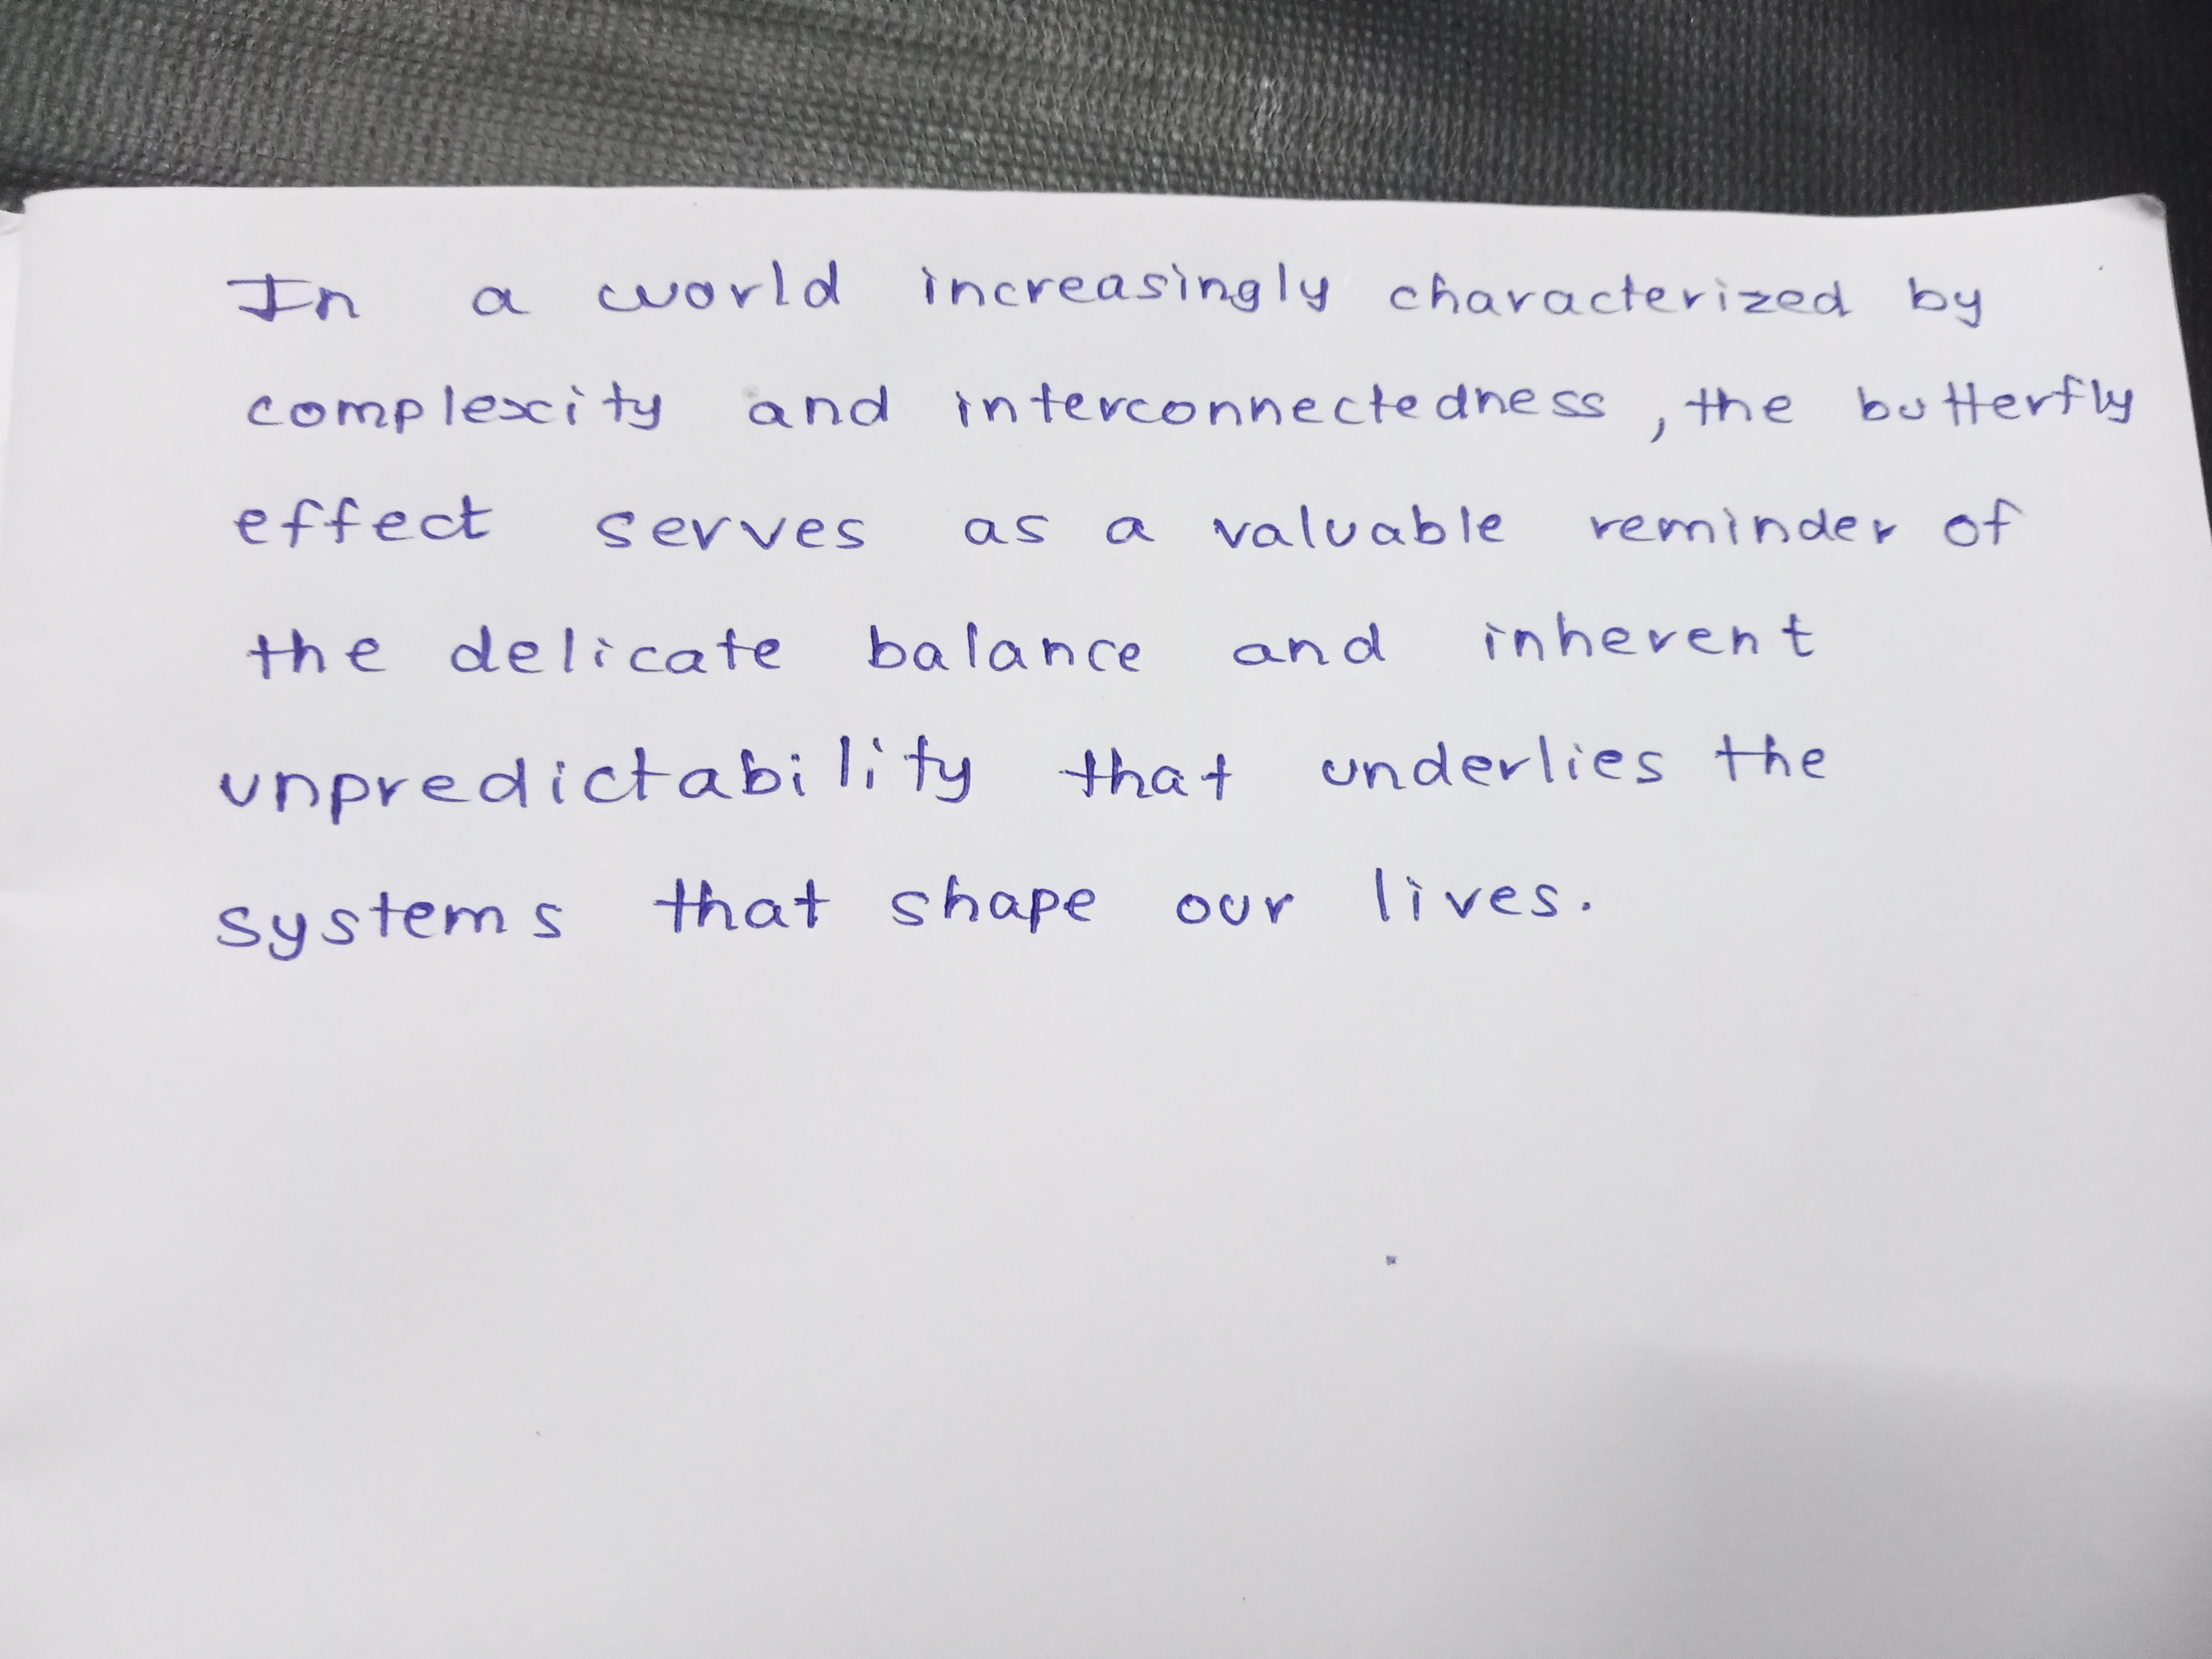 In a world increasingly characterized by
complexity and interconnectedness, the butterfly
effect serves as a valuable reminder of
the delicate balance and inherent
unpredictability that underlies the
systems that shape our lives.